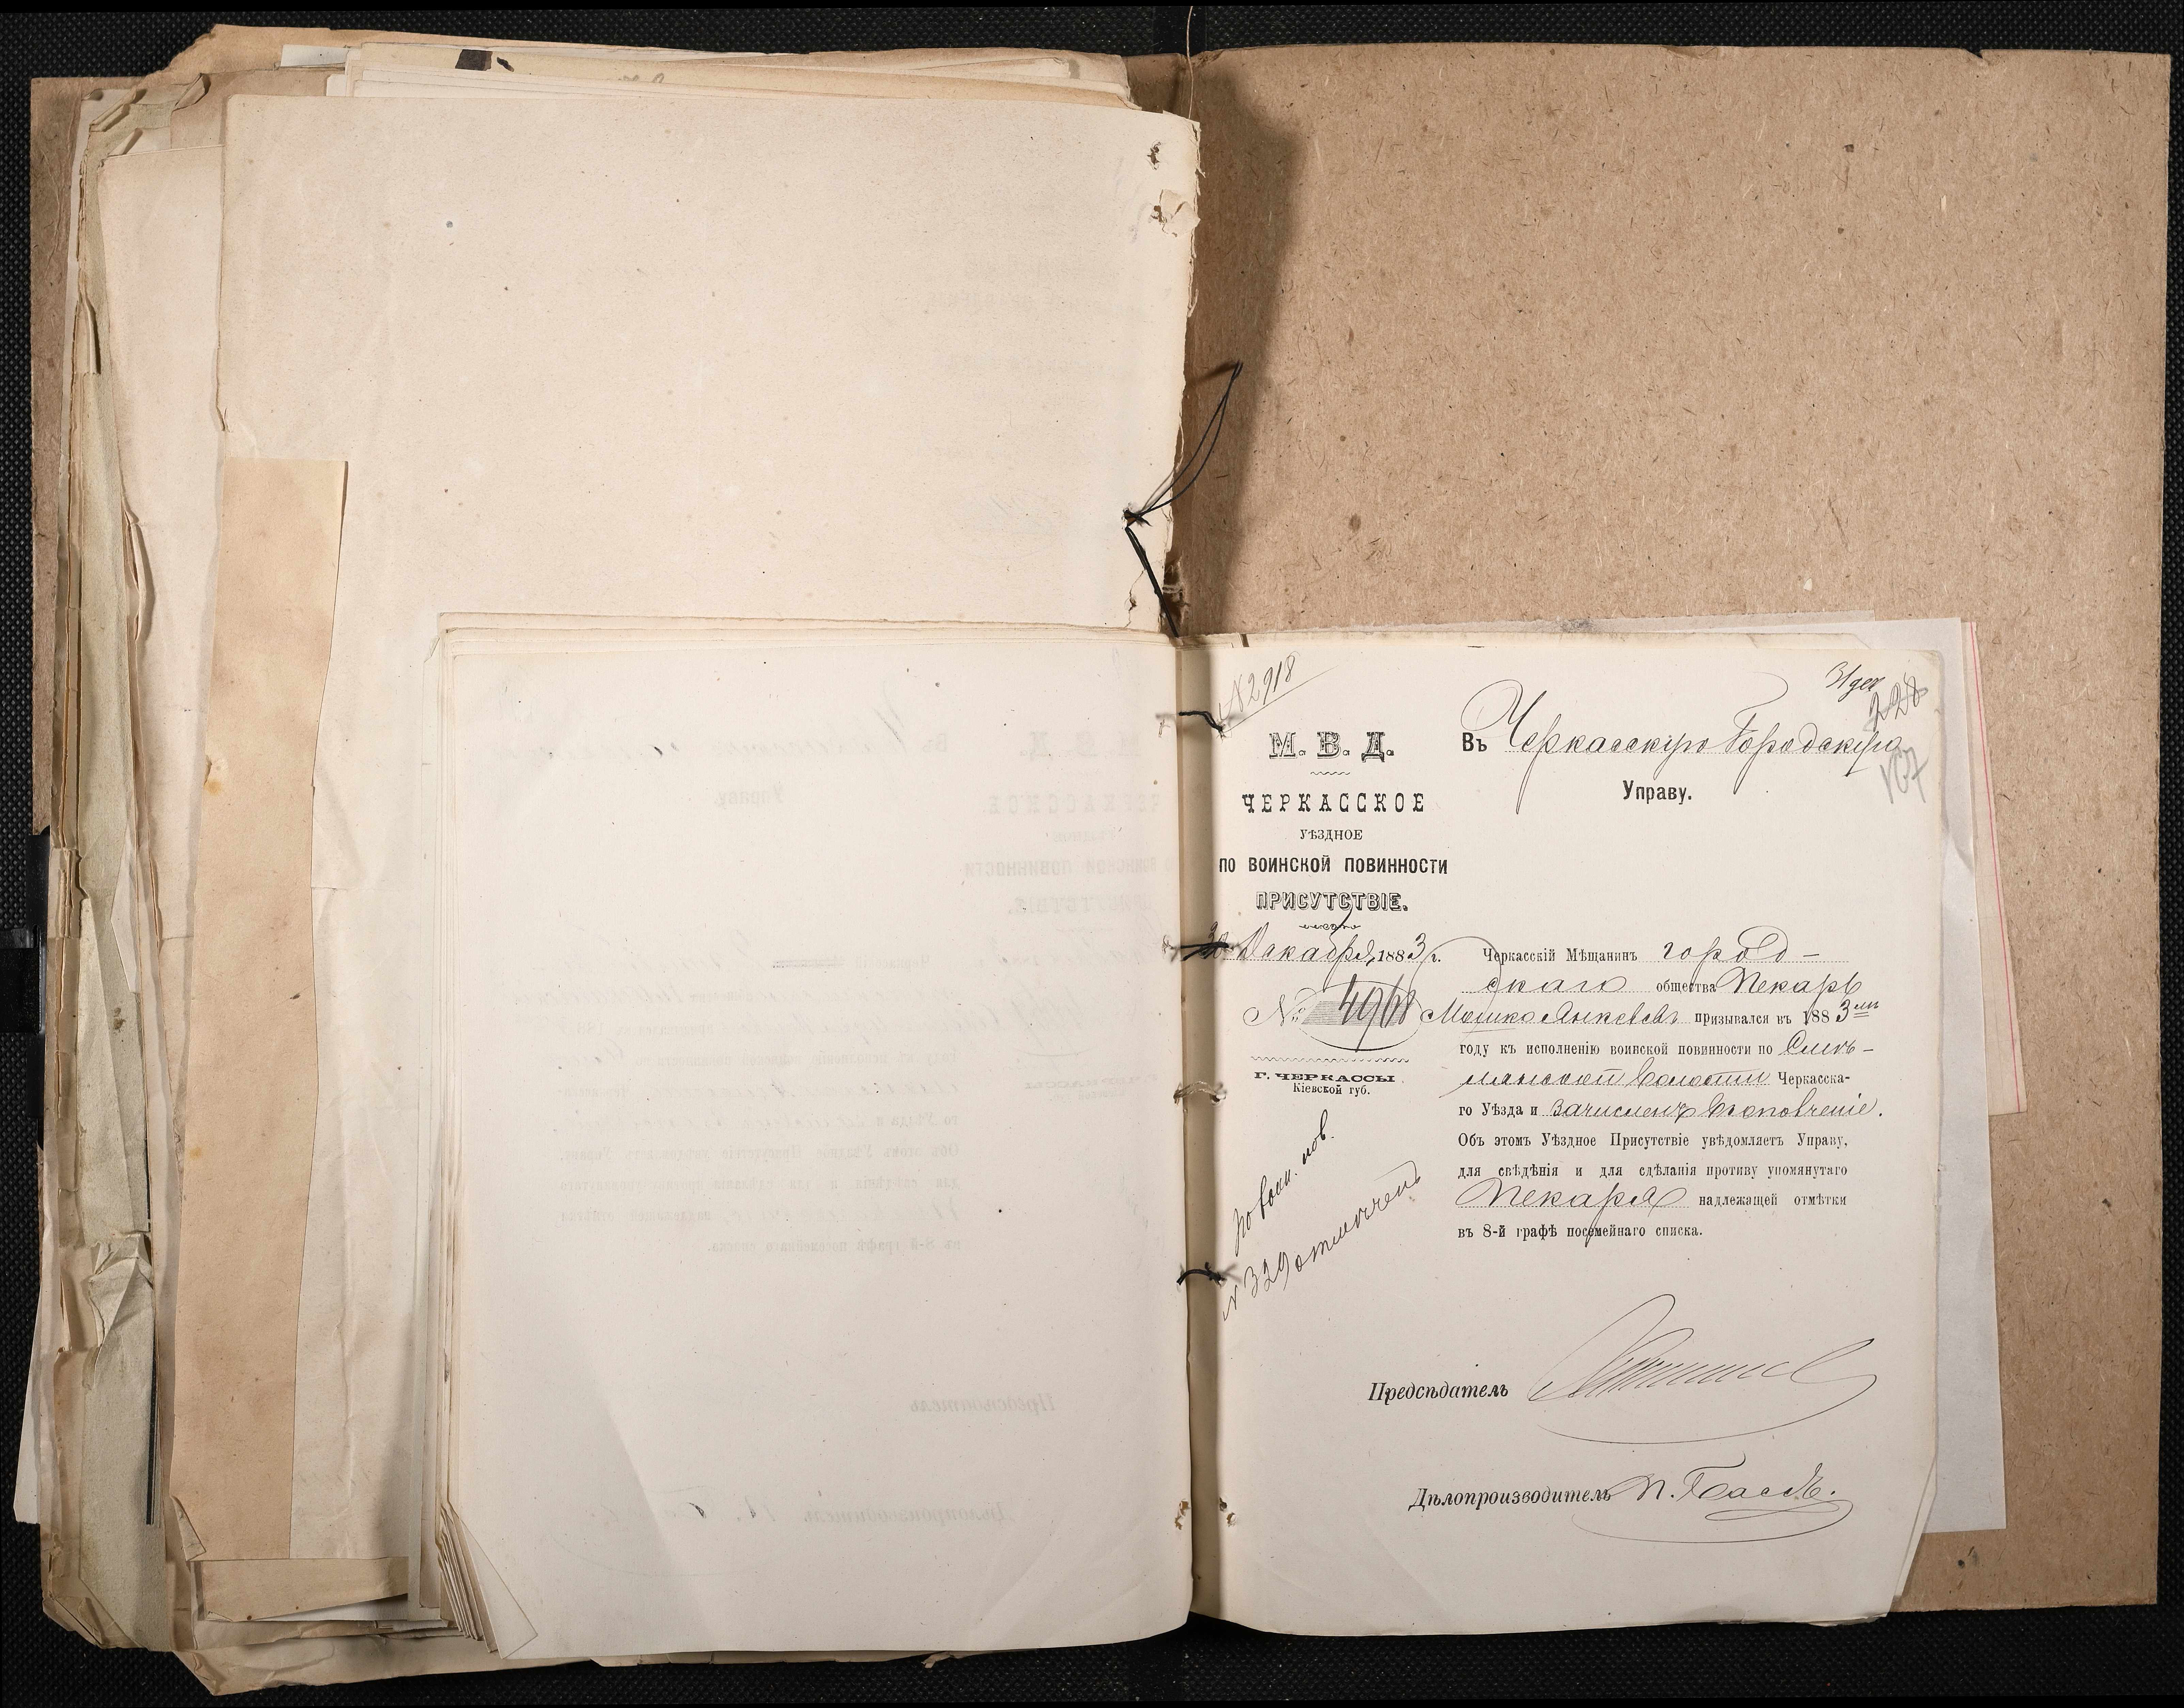 № 2918
31 дек
228
107
М. В. Д.
ЧЕРКАССКОЕ
УѢЗДНОЕ
ПО ВОИНСКОЙ ПОВИННОСТИ
ПРИСУТСТВІЕ.
30 Декабря 1883 г.
№ 4968
Г. ЧЕРКАССЫ
Кіевской губ.
По воин. пов.
№ 329 отмѣчен
Въ Черкасскую Городскую
Управу.
Черкасскій Мѣщанинъ город-
скаго общества Пекарь
Мошко Янкелевъ призывался въ 1883 мъ
году къ исполненію воинской повинности по Смѣ-
лянской Волости Черкасска-
го Уѣзда и зачисленъ въ ополченіе.
Объ этомъ Уѣздное Присутствіе увѣдомляетъ Управу,
для свѣдѣнія и для сдѣланія противу упомянутаго
Пекаря надлежащей отмѣтки
въ 8-й графѣ посемейнаго списка.
Предсѣдатель
Дѣлопроизводитель П. Бассъ.